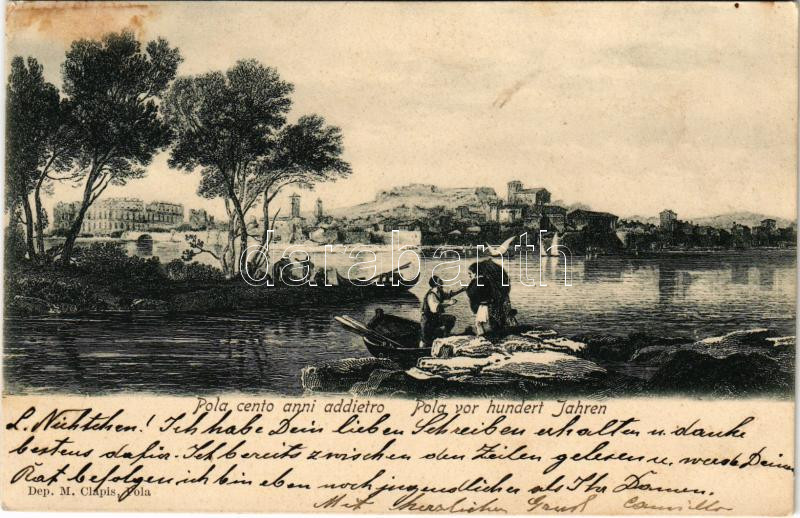 © darabanth
Pola cento anni addietro Pola vor hundert Jahren
L. Nichtchen! Ich habe Dein lieben Schreiben erhalten u. danke
bestens dafür. Ich bereits zwischen den Zeilen gelesen u. werde Deinen
Rat befolgen ich bin eben noch jugendlicher als Ihr Damen.
Dep. M. Clapis, Pola
Mit herzlichen Gruß Camillo